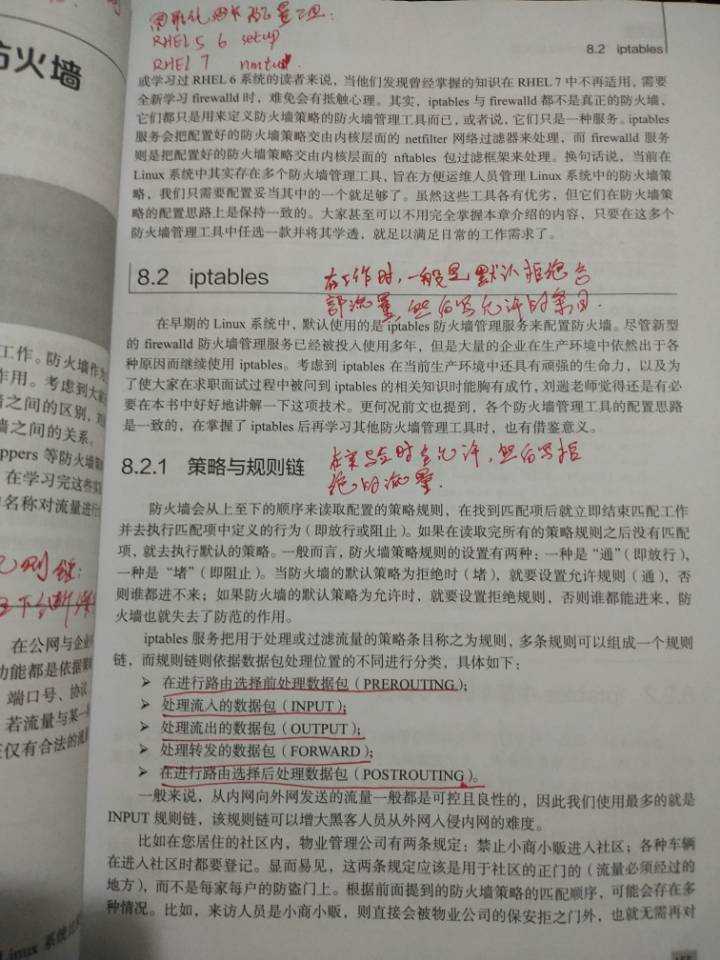 图形化网卡配置工具:
RHEL 5 6 setup
RHEL 7 nmtui.
8.2 iptables
防火墙
或学习过 RHEL 6 系统的读者来说,当他们发现曾经掌握的知识在 RHEL 7 中不再适用,需要
全新学习 firewalld 时,难免会有抵触心理。其实,iptables 与 firewalld 都不是真正的防火墙,
它们都只是用来定义防火墙策略的防火墙管理工具而已,或者说,它们只是一种服务。iptables
服务会把配置好的防火墙策略交由内核层面的 netfilter 网络过滤器来处理,而 firewalld 服务
则是把配置好的防火墙策略交由内核层面的 nftables 包过滤框架来处理。换句话说,当前在
Linux 系统中其实存在多个防火墙管理工具,旨在方便运维人员管理 Linux 系统中的防火墙策
略,我们只需要配置妥当其中的一个就足够了。虽然这些工具各有优劣,但它们在防火墙策
略的配置思路上是保持一致的。大家甚至可以不用完全掌握本章介绍的内容,只要在这多个
防火墙管理工具中任选一款并将其学透,就足以满足日常的工作需求了。
8.2 iptables
在工作时,一般是默认拒绝全
部流量,然后写允许的条目.
在早期的 Linux 系统中,默认使用的是 iptables 防火墙管理服务来配置防火墙。尽管新型
的 firewalld 防火墙管理服务已经被投入使用多年,但是大量的企业在生产环境中依然出于各
种原因而继续使用 iptables。考虑到 iptables 在当前生产环境中还具有顽强的生命力,以及为
了使大家在求职面试过程中被问到 iptables 的相关知识时能胸有成竹,刘遄老师觉得还是有必
要在本书中好好地讲解一下这项技术。更何况前文也提到,各个防火墙管理工具的配置思路
是一致的,在掌握了 iptables 后再学习其他防火墙管理工具时,也有借鉴意义。
8.2.1 策略与规则链
在实验时全允许,然后写拒
绝的流量.
防火墙会从上至下的顺序来读取配置的策略规则,在找到匹配项后就立即结束匹配工作
并去执行匹配项中定义的行为(即放行或阻止)。如果在读取完所有的策略规则之后没有匹配
项,就去执行默认的策略。一般而言,防火墙策略规则的设置有两种:一种是“通”(即放行),
一种是“堵”(即阻止)。当防火墙的默认策略为拒绝时(堵),就要设置允许规则(通),否
则谁都进不来;如果防火墙的默认策略为允许时,就要设置拒绝规则,否则谁都能进来,防
火墙也就失去了防范的作用。
iptables 服务把用于处理或过滤流量的策略条目称之为规则,多条规则可以组成一个规则
链,而规则链则依据数据包处理位置的不同进行分类,具体如下:
➢ 在进行路由选择前处理数据包(PREROUTING);
➢ 处理流入的数据包(INPUT);
➢ 处理流出的数据包(OUTPUT);
➢ 处理转发的数据包(FORWARD);
➢ 在进行路由选择后处理数据包(POSTROUTING)。
一般来说,从内网向外网发送的流量一般都是可控且良性的,因此我们使用最多的就是
INPUT 规则链,该规则链可以增大黑客人员从外网入侵内网的难度。
比如在您居住的社区内,物业管理公司有两条规定:禁止小商小贩进入社区;各种车辆
在进入社区时都要登记。显而易见,这两条规定应该是用于社区的正门的(流量必须经过的
地方),而不是每家每户的防盗门上。根据前面提到的防火墙策略的匹配顺序,可能会存在多
种情况。比如,来访人员是小商小贩,则直接会被物业公司的保安拒之门外,也就无需再对
工作。防火墙作为
作用。考虑到大家
之间的区别,
墙之间的关系。
ppers 等防火墙
在学习完这些
名称对流量进行
规则链:
在公网与企业
功能都是依据
端口号、协议
若流量与某一
仅有合法的流
Linux 系统